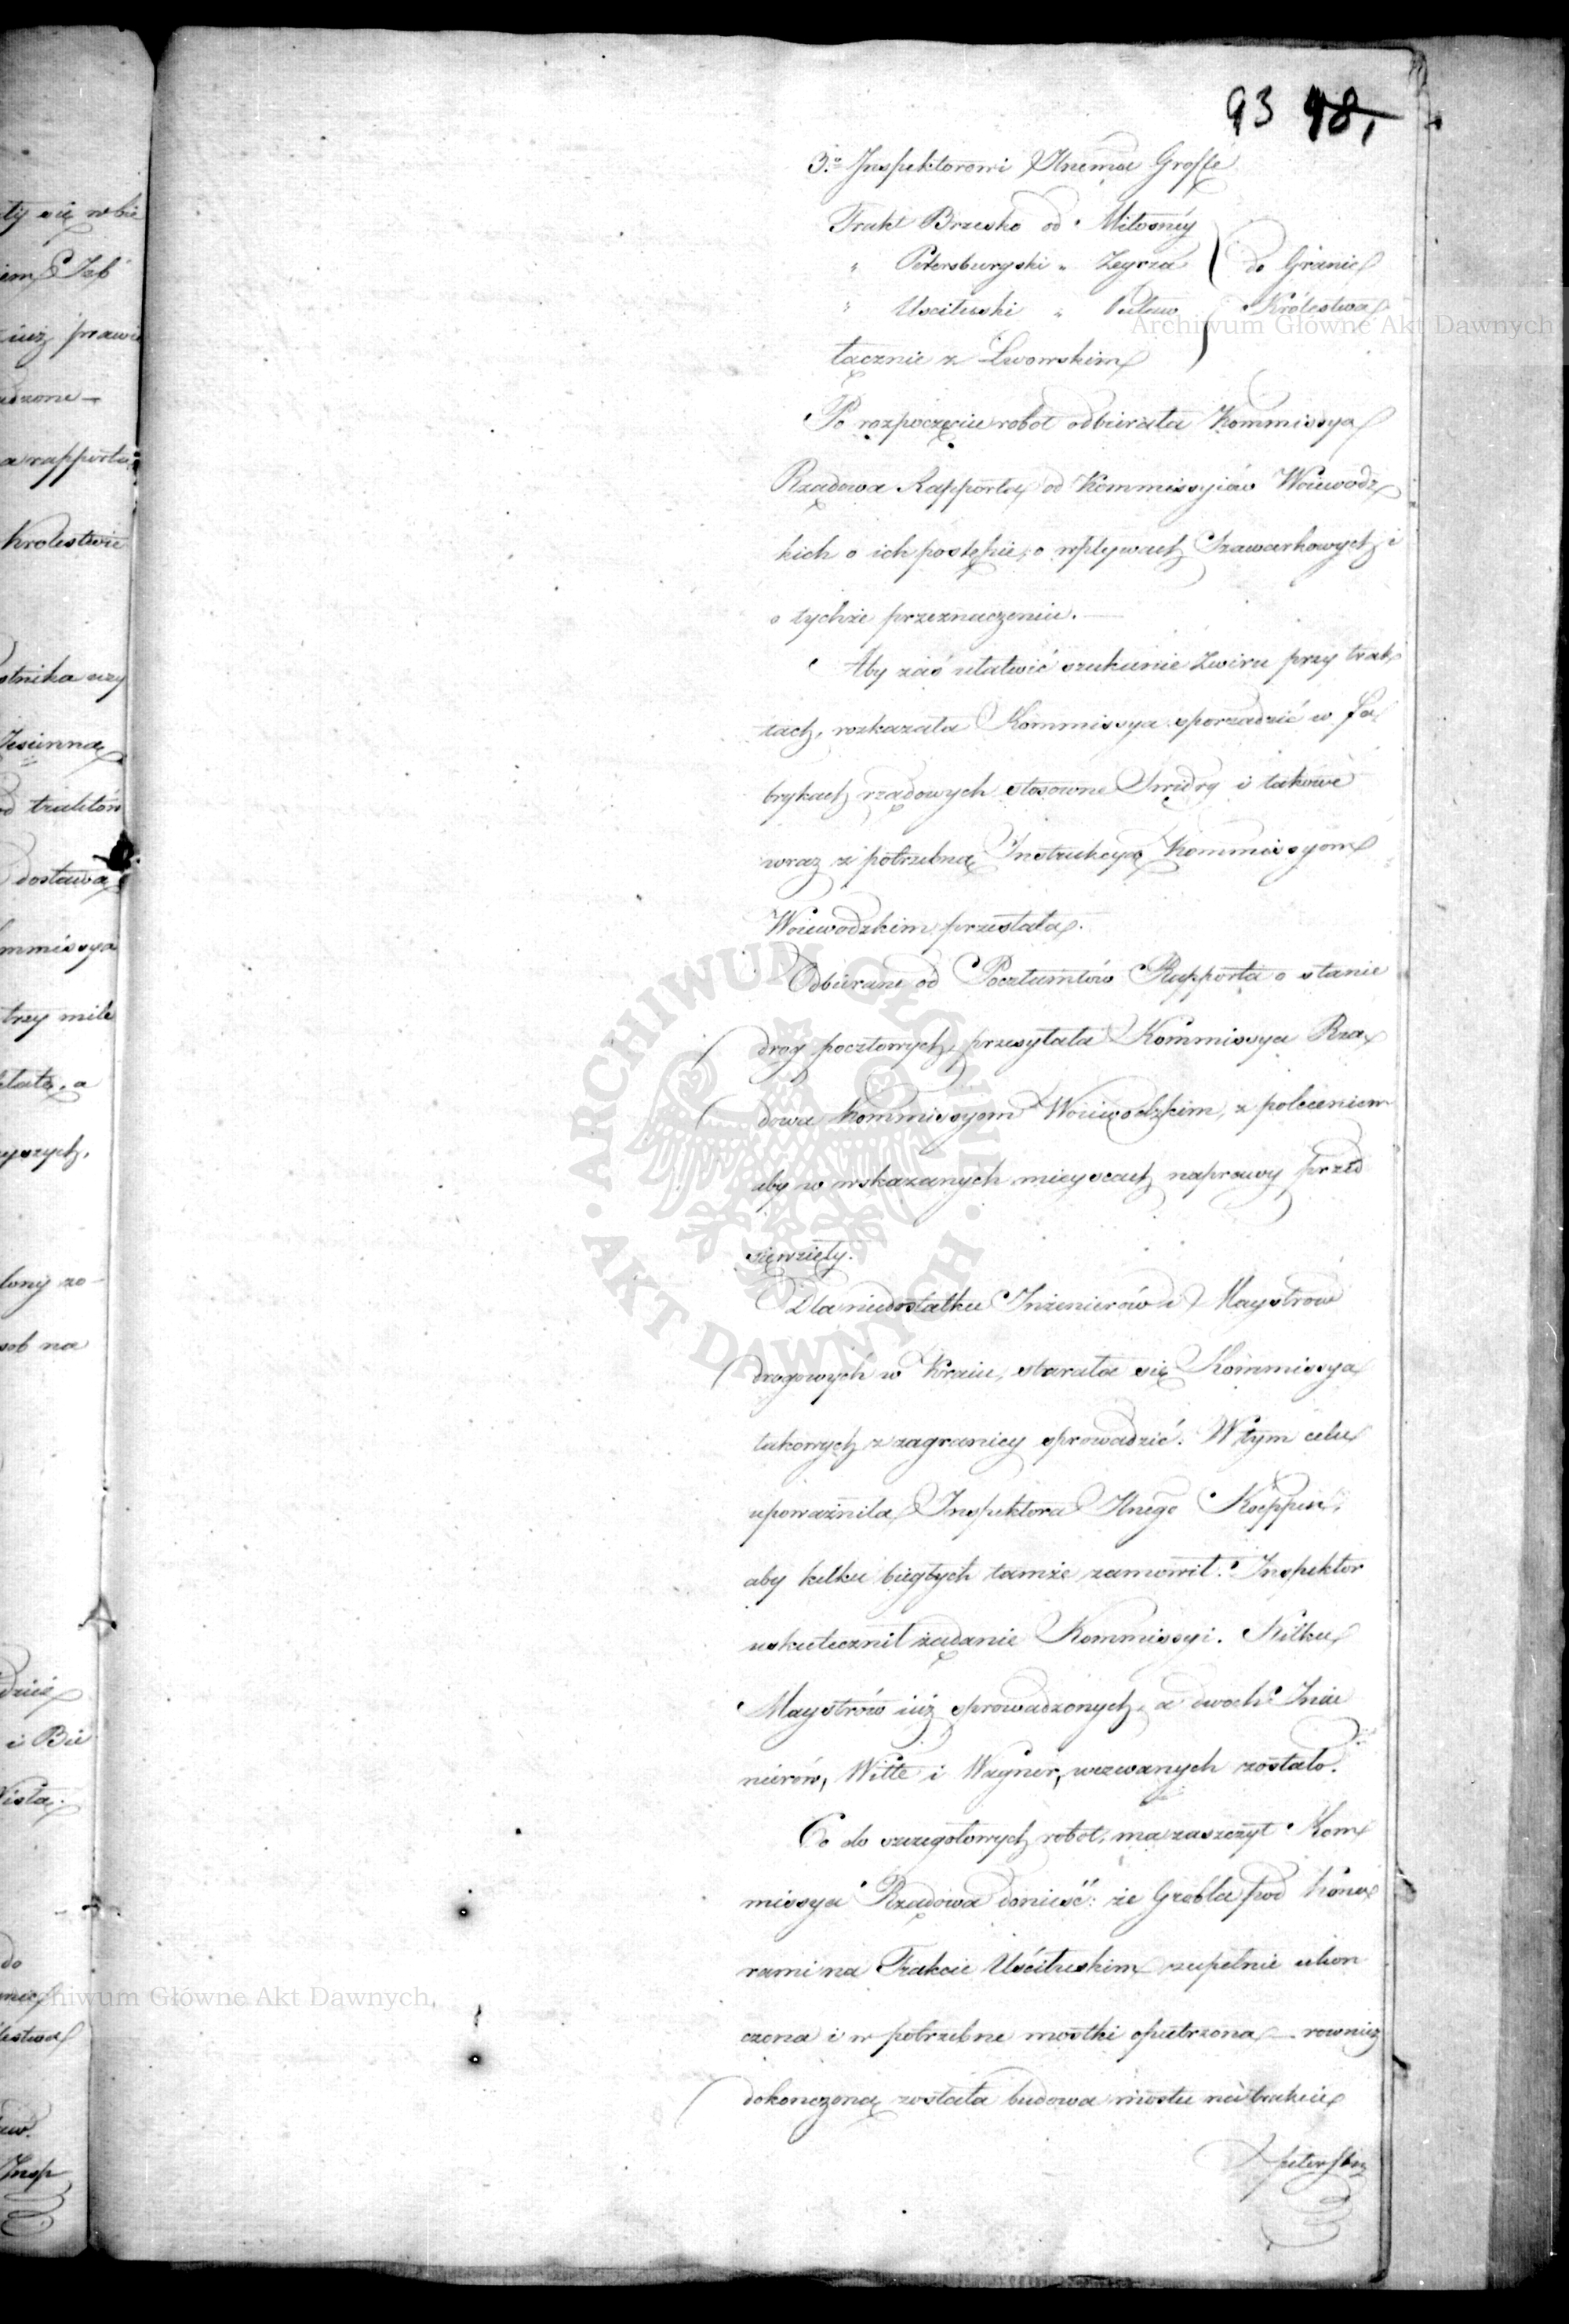 93 98,
3.o Inspektorowi Jlnemu Groffe
Trakt Brzesko od Miłosnéy
" Petersburgski " Zegrza do Granic
" Uscilugski " Puław Królestwa
łącznie z Lwowskim
Po rozpoczęciu robot odbierała Kommissya
Rządowa Rapporta od Kommissyiów Woiewodz
kich o ich postępie, o wpływach Szawarkowych i
o tychże przeznaczeniu.
Aby zaś ułatwić szukanie Żwiru przy trak
tach, rozkazała Kommissya sporządzić w fa
brykach rządowych stosowne Swidry i takowe
wraz z potrzebną Instrukcyą Kommissyom
Woiewodzkim przesłała.
Odbierane od Pocztamtów Rapporta o stanie
drog pocztowych, przesyłała Kommissya Rzą
dowa Kommissyom Woiewodzkim, z poleceniem
aby w wskazanych mieyscach naprawy przed
sięwzięły.
Dla niedostatku Inżenierów i Maystrów
drogowych w Kraiu, starała się Kommissya
takowych z zagranicy sprowadzić. W tym celu
upoważniła Inspektora Jlnego Koeppen,
aby kilku biegłych tamże zamowił. Inspektor
uskutecznił żądanie Kommissyi. Kilku
Maystrów iuż sprowadzonych, a dwoch Inże
nierów, Witte i Wagner, wezwanych zostało.
Co do szczegołowych robot, ma zaszczyt Kom
missya Rządowa donieść: że Grobla pod Kono
rami na Trakcie Uściłuskim zupełnie ukon
czona i w potrzebne mostki opatrzona — rownież
dokonczoną została budowa mostu na trakcie
petersbu
ty się w bie
iuż prawie
dzone —
a rapporta
Krolestwie
otnika
Jesienna
od traktów
dostawa
mmissya
trzy mile
i Bu
Wisła.
do
Insp
Archiwum Główne Akt Dawnych
ARCHIWUM GŁÓWNE · AKT DAWNYCH ·
Archiwum Główne Akt Dawnych,